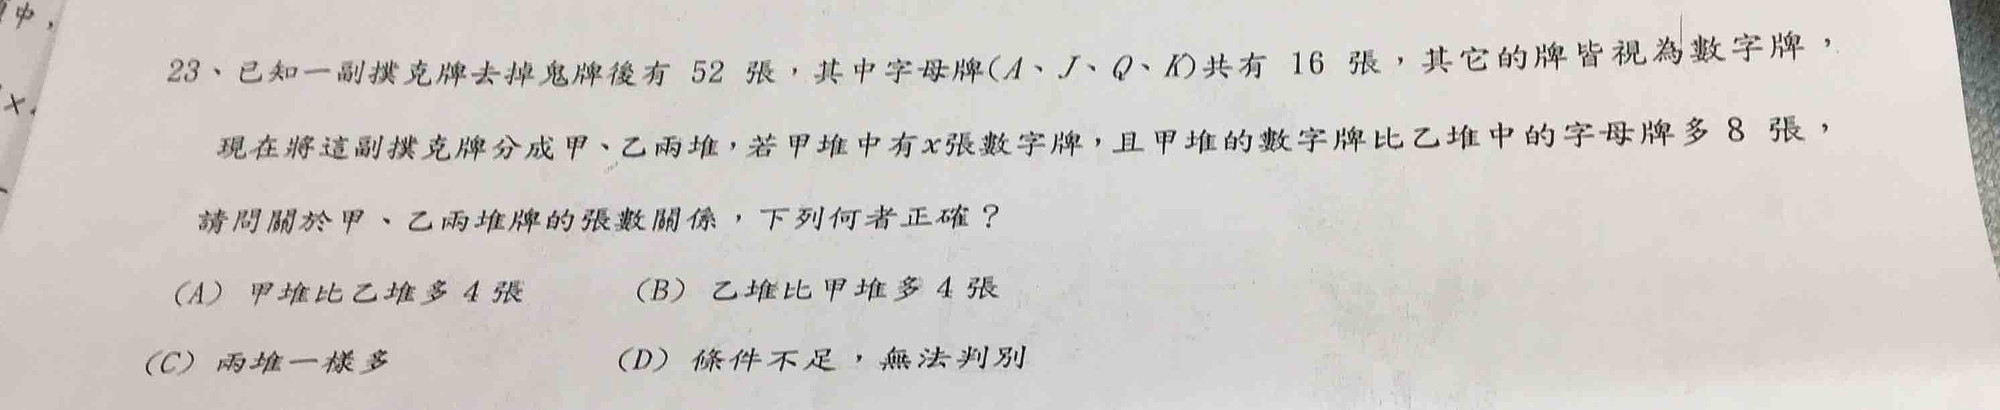 中，
23、已知一副撲克牌去掉鬼牌後有 52 張，其中字母牌(A、J、Q、K)共有 16 張，其它的牌皆視為數字牌，
現在將這副撲克牌分成甲、乙兩堆，若甲堆中有x張數字牌，且甲堆的數字牌比乙堆中的字母牌多 8 張，
請問關於甲、乙兩堆牌的張數關係，下列何者正確？
(A) 甲堆比乙堆多 4 張 (B) 乙堆比甲堆多 4 張
(C) 兩堆一樣多 (D) 條件不足，無法判別